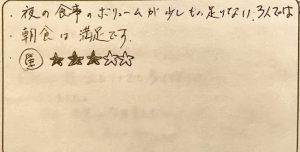 ・夜の食事のボリュームが少しもの足りない、3人では
・朝食は満足です。
★★★☆☆